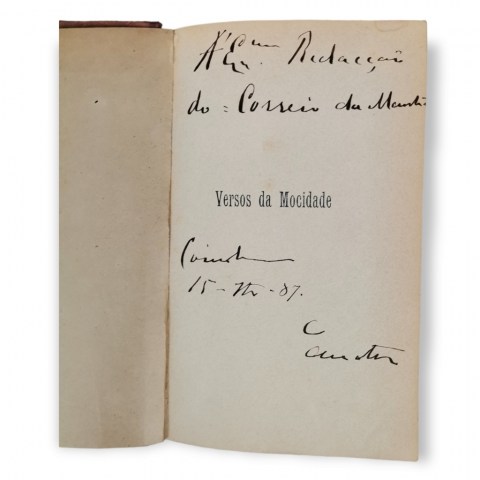 A' Exma. Redacção
do = Correio da Manhã
Versos da Mocidade
Coimbra
15 - - 87.
O
auctor